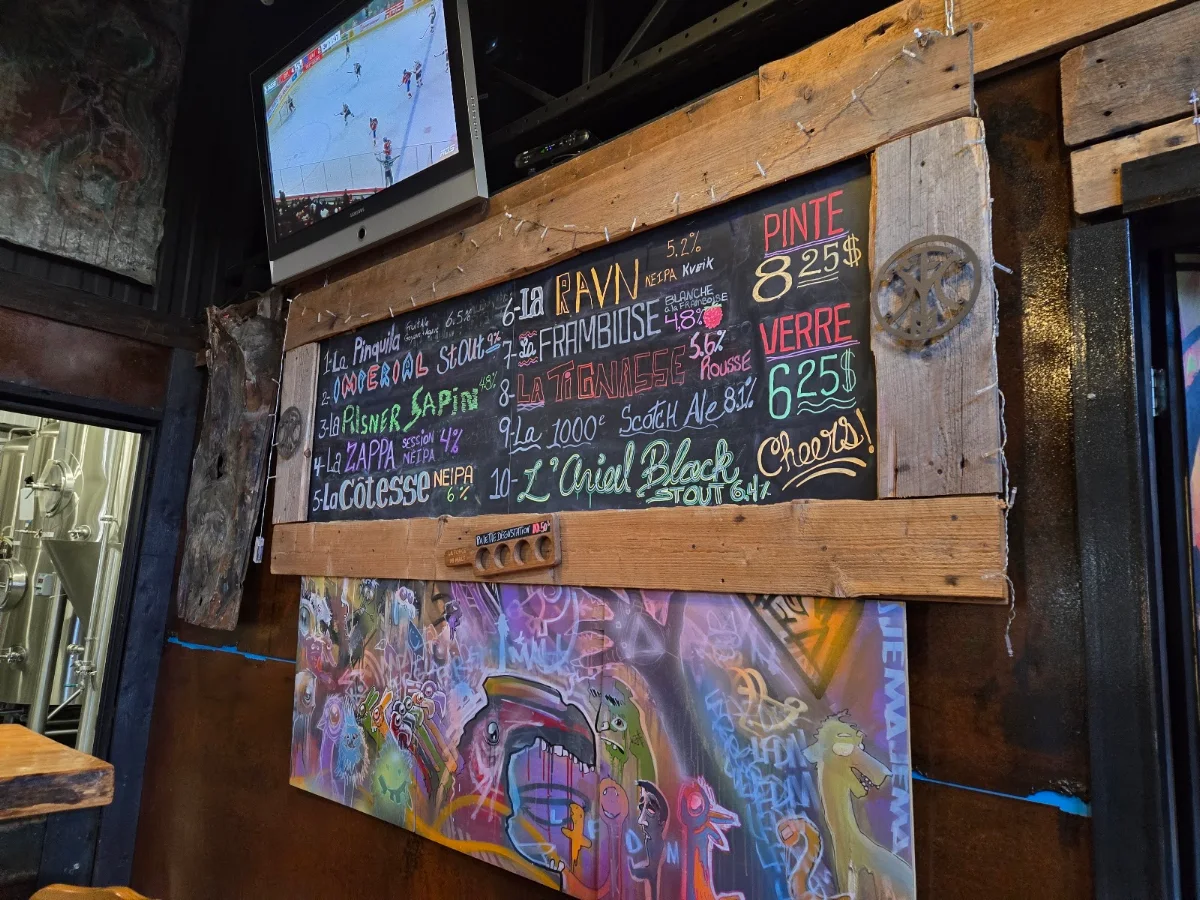 1-La Pinquila 6.5%
2-IMPERIAL StOUt 9%
3-La PILSNER SAPiN 4.8%
4-La ZAPPA SESSION NEIPA 4%
5-La CÔTESSE NEIPA 6%
6-La RAVN NEIPA KVEiK 5.2%
7-La FRAMBIOSE BLANCHE à la FRAMBOISE 4.8%
8-LA TiGNASSE 5.6% ROUSSE
9-La 1000e SCOTCH Ale 8.1%
10-L'Ariel Black STOUT 6.4%
PINTE
8 25$
VERRE
6 25$
Cheers!
PALETTE DÉGUSTATION
JNEMMA.JEMMA